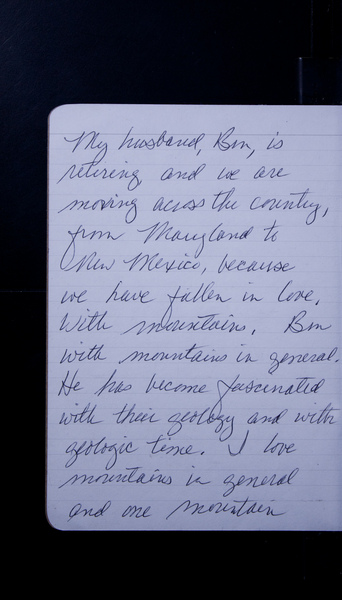 My husband, Ben, is
retiring and we are
moving across the country,
from Maryland to
New Mexico, because
we have fallen in love.
With mountains. Ben
with mountains in general.
He has become fascinated
with their geology and with
geologic time. I love
mountains in general
and one mountain